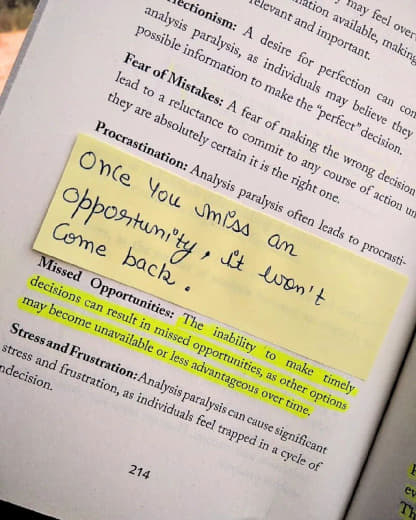 may feel over
mation available, making
relevant and important.
fectionism: A desire for perfection can con
analysis paralysis, as individuals may believe they
possible information to make the "perfect" decision.
Fear of Mistakes: A fear of making the wrong decision
lead to a reluctance to commit to any course of action un
they are absolutely certain it is the right one.
Procrastination: Analysis paralysis often leads to procrasti-
Once you miss an
opportunity, it won't
come back.
Missed Opportunities: The inability to make timely
decisions can result in missed opportunities, as other options
may become unavailable or less advantageous over time.
Stress and Frustration: Analysis paralysis can cause significant
stress and frustration, as individuals feel trapped in a cycle of
ndecision.
214